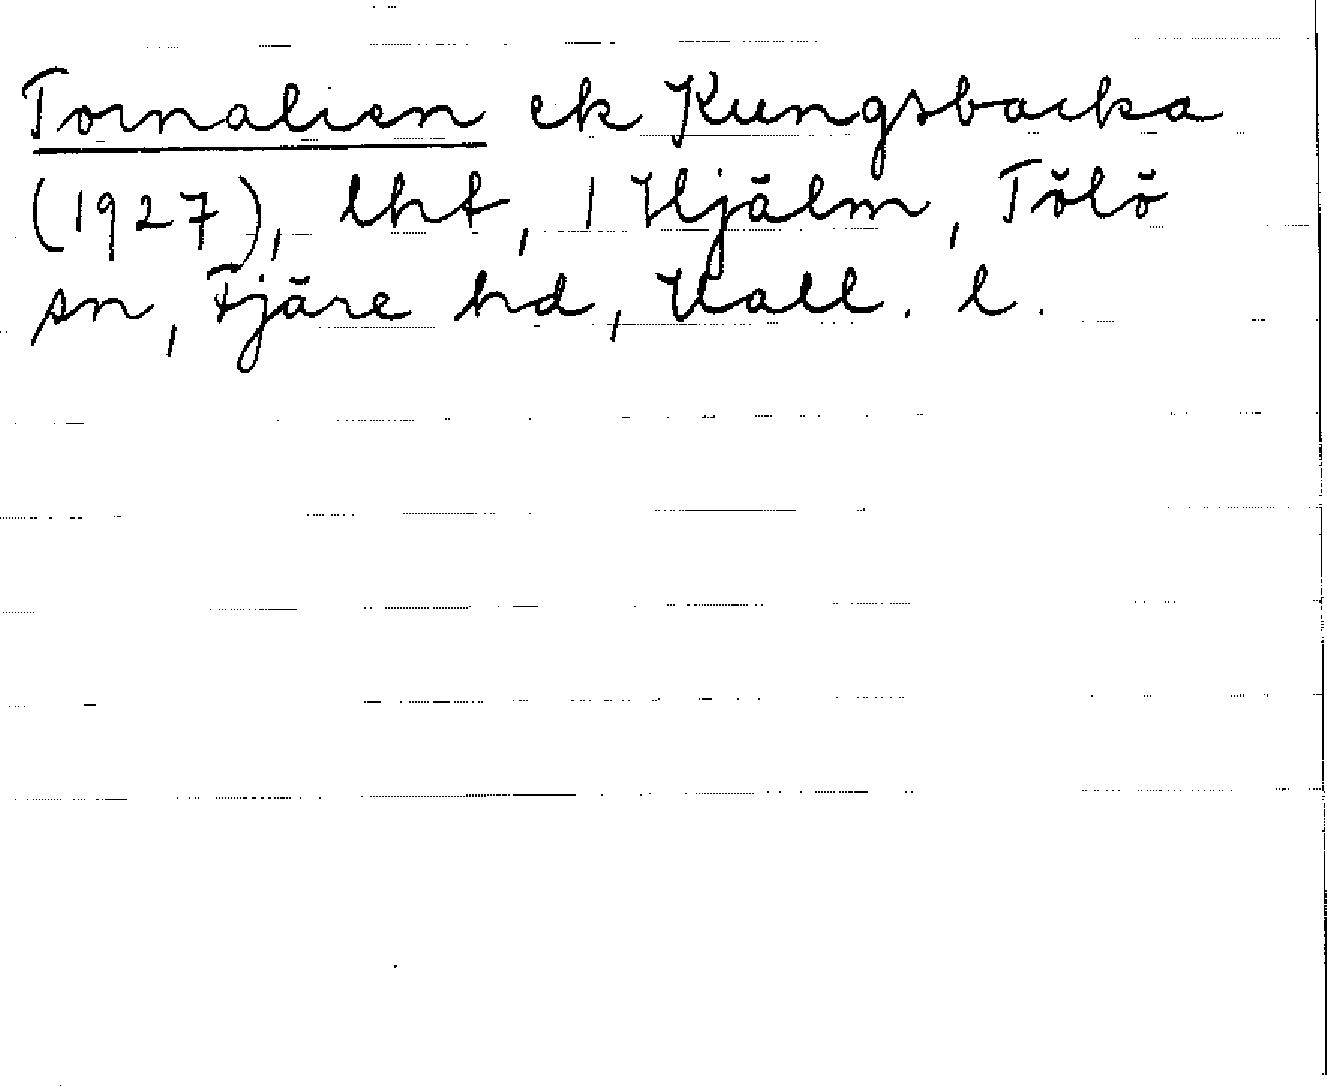 Tornalien ek Kungsbacka
(1927), lht, 1 Hjälm, Tölö
sn, Fjäre hd, Hall. l.